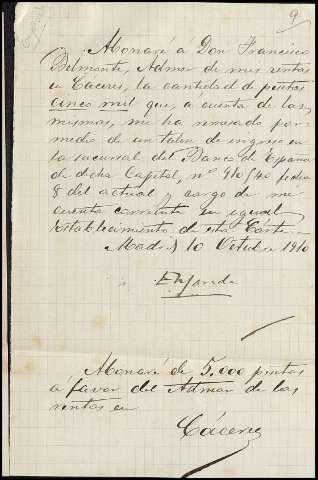 9
Abonaré á Don Francisco
Belmonte, Admor de mis rentas
en Cáceres, la cantidad de pesetas
cinco mil que, a cuenta de las
mismas, me ha remesado por
medio de un talon de ingreso en
la sucursal del Banco de España
de dicha Capital, nº 910540 fecha
8 del actual y cargo de mi
cuenta corriente en igual
establecimiento de esta Corte.
Madrid 10 Octubre 1910
Abonaré de 5.000 pesetas
á favor del Admor de las
rentas en
Cáceres